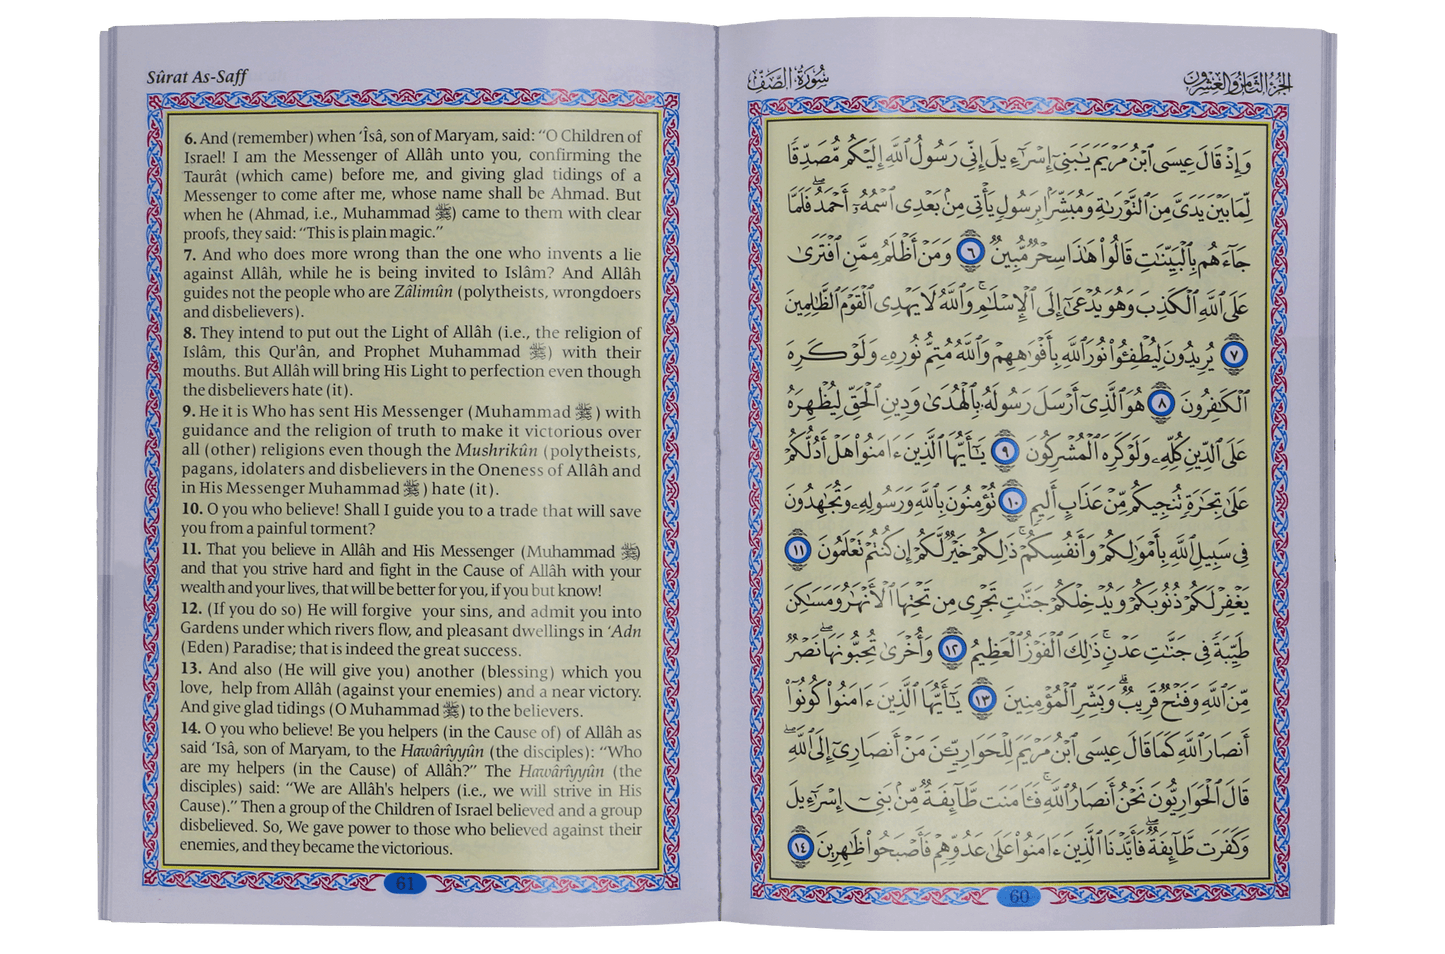 Sûrat As-Saff
6. And (remember) when ‘Îsâ, son of Maryam, said: “O Children of
Israel! I am the Messenger of Allâh unto you, confirming the
Taurât (which came) before me, and giving glad tidings of a
Messenger to come after me, whose name shall be Ahmad. But
when he (Ahmad, i.e., Muhammad ﷺ) came to them with clear
proofs, they said: “This is plain magic.”
7. And who does more wrong than the one who invents a lie
against Allâh, while he is being invited to Islâm? And Allâh
guides not the people who are Zâlimûn (polytheists, wrongdoers
and disbelievers).
8. They intend to put out the Light of Allâh (i.e., the religion of
Islâm, this Qur'ân, and Prophet Muhammad ﷺ) with their
mouths. But Allâh will bring His Light to perfection even though
the disbelievers hate (it).
9. He it is Who has sent His Messenger (Muhammad ﷺ) with
guidance and the religion of truth to make it victorious over
all (other) religions even though the Mushrikûn (polytheists,
pagans, idolaters and disbelievers in the Oneness of Allâh and
in His Messenger Muhammad ﷺ) hate (it).
10. O you who believe! Shall I guide you to a trade that will save
you from a painful torment?
11. That you believe in Allâh and His Messenger (Muhammad ﷺ)
and that you strive hard and fight in the Cause of Allâh with your
wealth and your lives, that will be better for you, if you but know!
12. (If you do so) He will forgive your sins, and admit you into
Gardens under which rivers flow, and pleasant dwellings in ‘Adn
(Eden) Paradise; that is indeed the great success.
13. And also (He will give you) another (blessing) which you
love, help from Allâh (against your enemies) and a near victory.
And give glad tidings (O Muhammad ﷺ) to the believers.
14. O you who believe! Be you helpers (in the Cause of) of Allâh as
said ‘Isâ, son of Maryam, to the Hawârîyyûn (the disciples): “Who
are my helpers (in the Cause) of Allâh?” The Hawârîyyûn (the
disciples) said: “We are Allâh's helpers (i.e., we will strive in His
Cause).” Then a group of the Children of Israel believed and a group
disbelieved. So, We gave power to those who believed against their
enemies, and they became the victorious.
61
الجزء الثامن والعشرون
سُورَةُ الصَّفِّ
وَإِذْ قَالَ عِيسَى ٱبْنُ مَرْيَمَ يَٰبَنِىٓ إِسْرَٰٓءِيلَ إِنِّى رَسُولُ ٱللَّهِ إِلَيْكُم مُّصَدِّقًا
لِّمَا بَيْنَ يَدَىَّ مِنَ ٱلتَّوْرَىٰةِ وَمُبَشِّرًۢا بِرَسُولٍ يَأْتِى مِنۢ بَعْدِى ٱسْمُهُۥٓ أَحْمَدُۖ فَلَمَّا
جَآءَهُم بِٱلْبَيِّنَٰتِ قَالُوا۟ هَٰذَا سِحْرٌ مُّبِينٌ ٦ وَمَنْ أَظْلَمُ مِمَّنِ ٱفْتَرَىٰ
عَلَى ٱللَّهِ ٱلْكَذِبَ وَهُوَ يُدْعَىٰٓ إِلَى ٱلْإِسْلَٰمِۚ وَٱللَّهُ لَا يَهْدِى ٱلْقَوْمَ ٱلظَّٰلِمِينَ
٧ يُرِيدُونَ لِيُطْفِـُٔوا۟ نُورَ ٱللَّهِ بِأَفْوَٰهِهِمْ وَٱللَّهُ مُتِمُّ نُورِهِۦ وَلَوْ كَرِهَ
ٱلْكَٰفِرُونَ ٨ هُوَ ٱلَّذِىٓ أَرْسَلَ رَسُولَهُۥ بِٱلْهُدَىٰ وَدِينِ ٱلْحَقِّ لِيُظْهِرَهُۥ
عَلَى ٱلدِّينِ كُلِّهِۦ وَلَوْ كَرِهَ ٱلْمُشْرِكُونَ ٩ يَٰٓأَيُّهَا ٱلَّذِينَ ءَامَنُوا۟ هَلْ أَدُلُّكُمْ
عَلَىٰ تِجَٰرَةٍ تُنجِيكُم مِّنْ عَذَابٍ أَلِيمٍ ١٠ تُؤْمِنُونَ بِٱللَّهِ وَرَسُولِهِۦ وَتُجَٰهِدُونَ
فِى سَبِيلِ ٱللَّهِ بِأَمْوَٰلِكُمْ وَأَنفُسِكُمْۚ ذَٰلِكُمْ خَيْرٌ لَّكُمْ إِن كُنتُمْ تَعْلَمُونَ ١١
يَغْفِرْ لَكُمْ ذُنُوبَكُمْ وَيُدْخِلْكُمْ جَنَّٰتٍ تَجْرِى مِن تَحْتِهَا ٱلْأَنْهَٰرُ وَمَسَٰكِنَ
طَيِّبَةً فِى جَنَّٰتِ عَدْنٍۚ ذَٰلِكَ ٱلْفَوْزُ ٱلْعَظِيمُ ١٢ وَأُخْرَىٰ تُحِبُّونَهَاۖ نَصْرٌ
مِّنَ ٱللَّهِ وَفَتْحٌ قَرِيبٌۗ وَبَشِّرِ ٱلْمُؤْمِنِينَ ١٣ يَٰٓأَيُّهَا ٱلَّذِينَ ءَامَنُوا۟ كُونُوٓا۟
أَنصَارَ ٱللَّهِ كَمَا قَالَ عِيسَى ٱبْنُ مَرْيَمَ لِلْحَوَارِيِّـۧنَ مَنْ أَنصَارِىٓ إِلَى ٱللَّهِۖ
قَالَ ٱلْحَوَارِيُّونَ نَحْنُ أَنصَارُ ٱللَّهِۖ فَـَٔامَنَت طَّآئِفَةٌ مِّنۢ بَنِىٓ إِسْرَٰٓءِيلَ
وَكَفَرَت طَّآئِفَةٌۖ فَأَيَّدْنَا ٱلَّذِينَ ءَامَنُوا۟ عَلَىٰ عَدُوِّهِمْ فَأَصْبَحُوا۟ ظَٰهِرِينَ ١٤
60